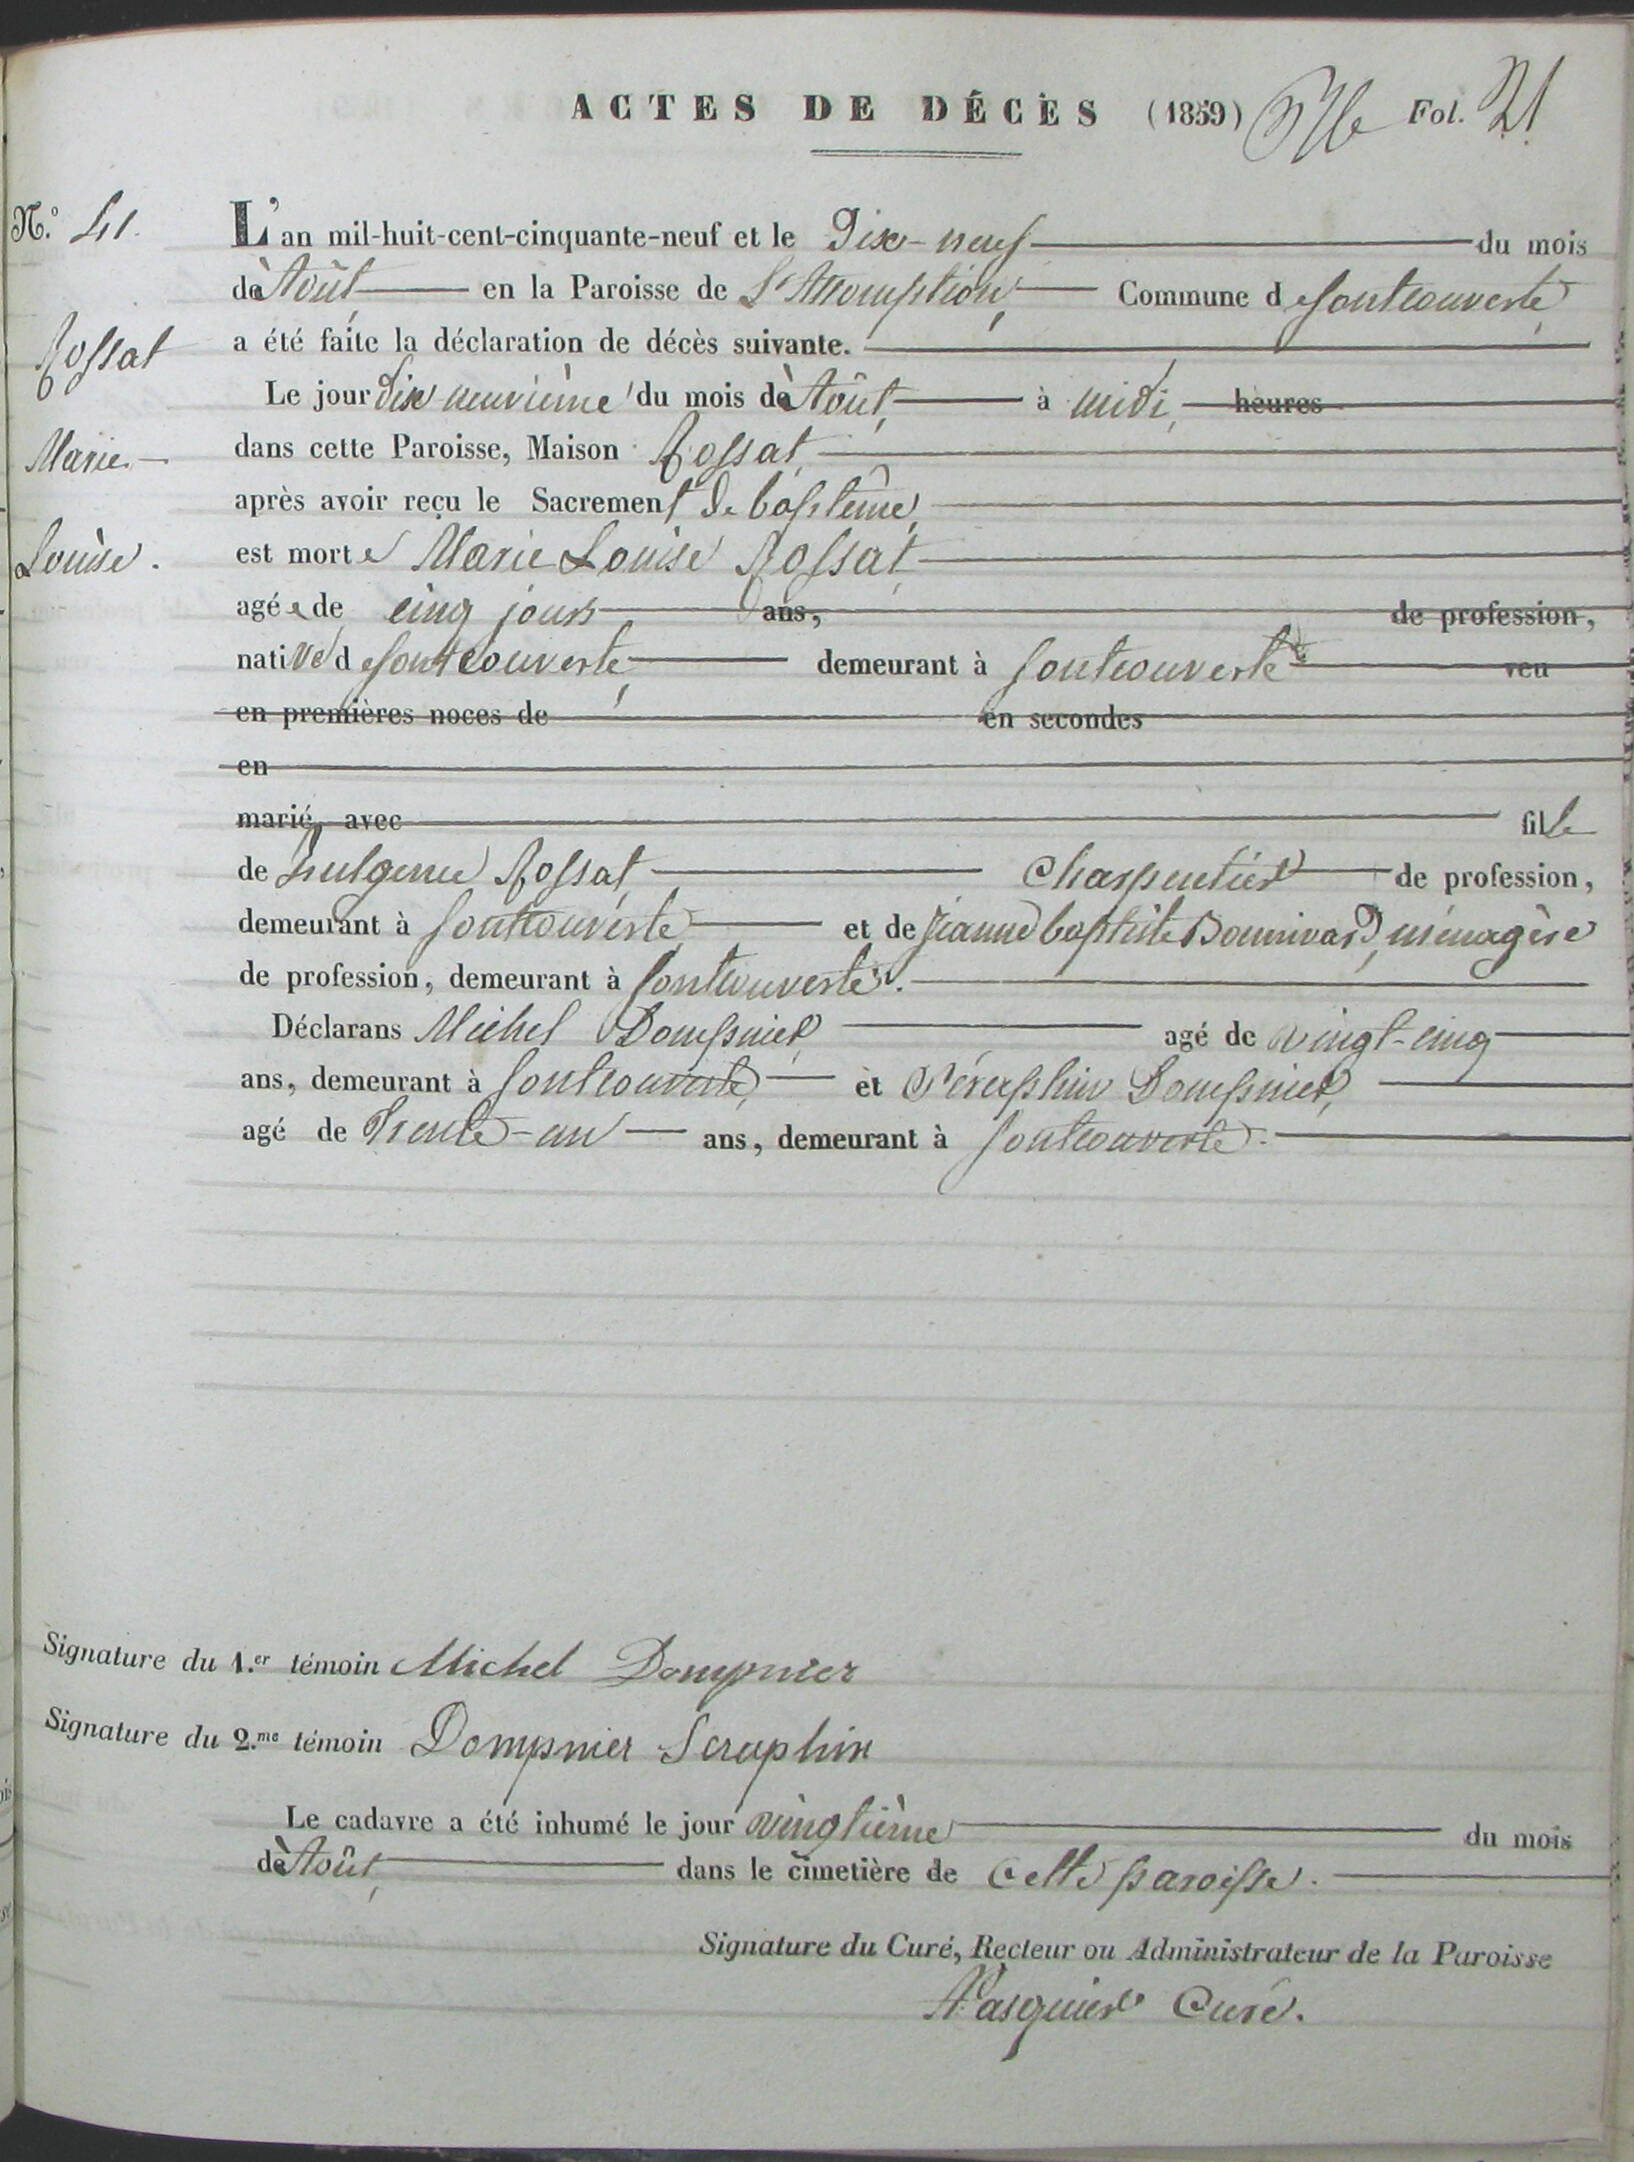 ACTES DE DÉCÈS (1859) Fol. 21
N.° 41. L'an mil-huit-cent-cinquante-neuf et le Dix-neuf du mois
d'Août en la Paroisse de L'Assomption, Commune de fontcouverte,
a été faite la déclaration de décès suivante.
Rossat
Le jour dix neuvième du mois d'Août, à midi, heures
Marie
dans cette Paroisse, Maison Rossat,
après avoir reçu le Sacrement de baptême,
Louise.
est morte Marie Louise Rossat,
agée de cinq jours ans, de profession,
native de fontcouverte, demeurant à fontcouverte veu
en premières noces de en secondes
en
marié, avec fille
de fulgence Rossat, Charpentier de profession,
demeurant à fontcouverte et de Jeanne baptiste Bonnivard, ménagère
de profession, demeurant à fontcouverte.
Déclarans Michel Dompnier, agé de vingt-cinq
ans, demeurant à fontcouverte, et Séraphin Dompnier,
agé de Trente-un ans, demeurant à fontcouverte.
Signature du 1.er témoin Michel Dompnier
Signature du 2.me témoin Dompnier Seraphin
Le cadavre a été inhumé le jour vingtième du mois
d'Août, dans le cimetière de cette paroisse.
Signature du Curé, Recteur ou Administrateur de la Paroisse
Pasquier Curé.